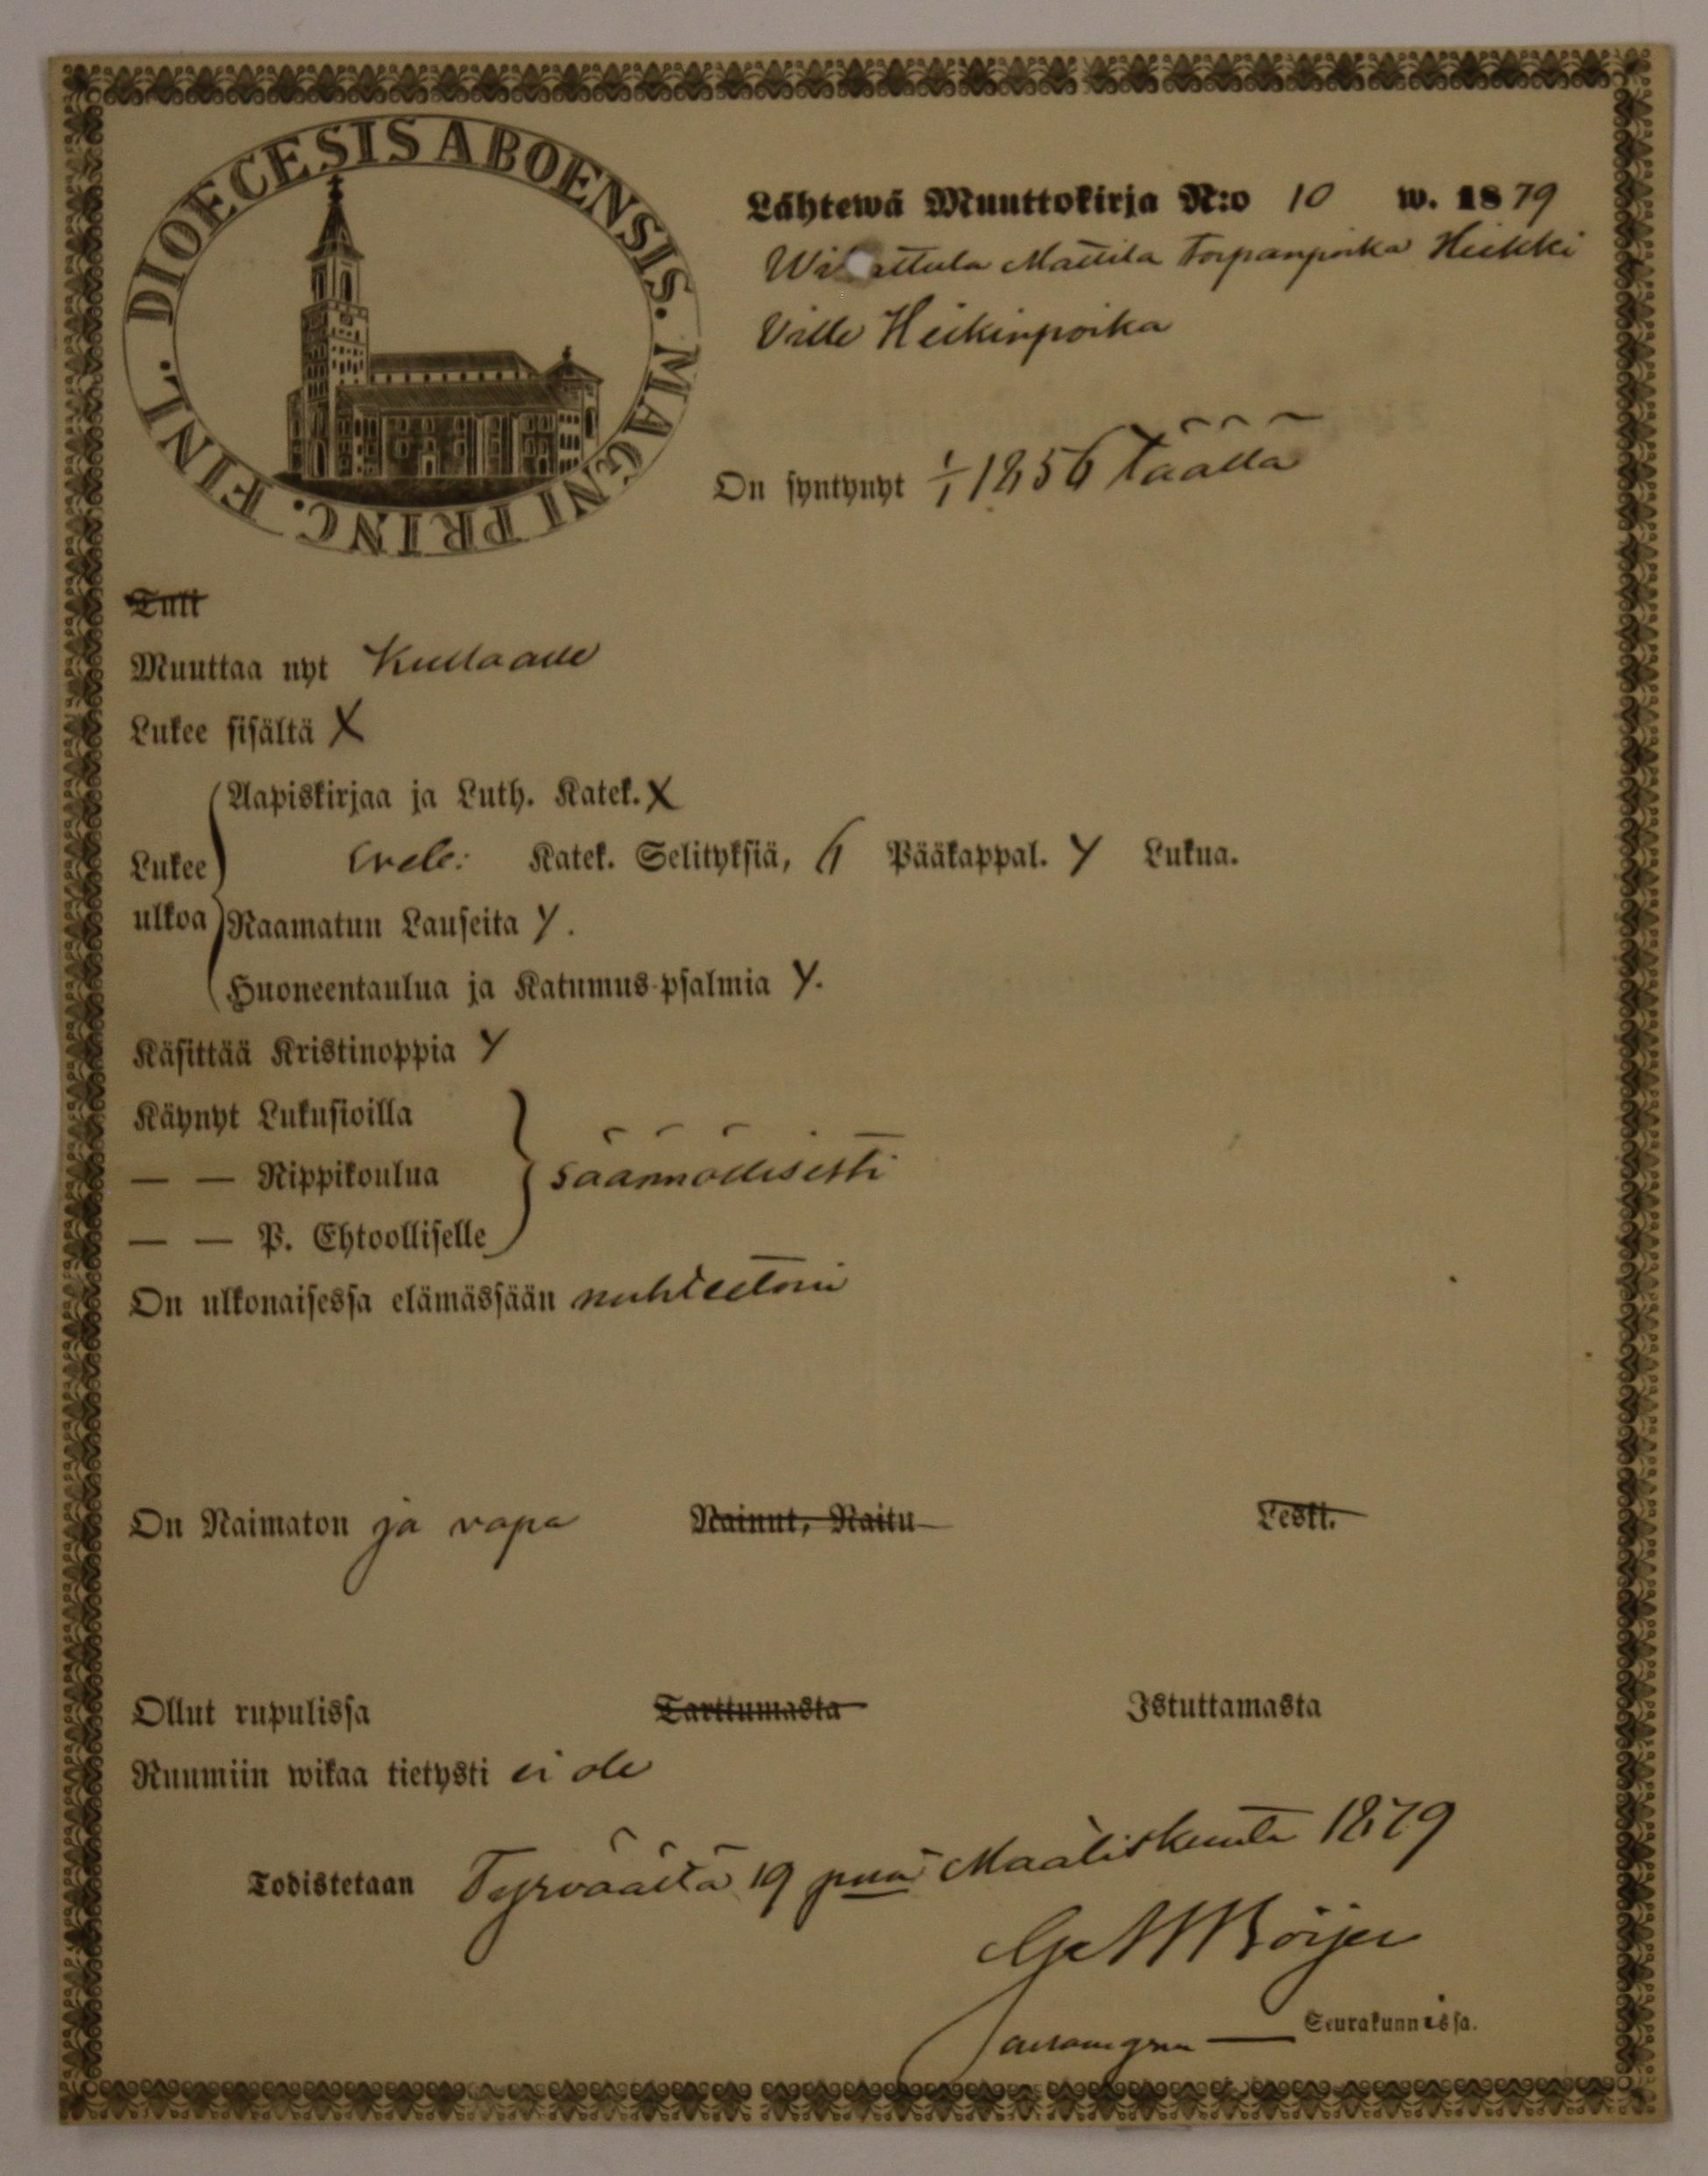 DIOECESIS ABOENSIS. MAGNI PRINC. FINL.
Lähtewä Muuttokirja N:o 10 w. 1879
Mattila Torpanpoika Heikki
Ville Heikinpoika
On syntynyt 1/1 1856 täällä
Tult
Muuttaa nyt Kullaalle
Lukee sisältä X
Aapiskirjaa ja Luth. Katek. X
Lukee ulkoa
Svebe: Katek. Selityksiä, 6 Pääkappal. Y Lukua.
Raamatun Lauseita Y.
Huoneentaulua ja Katumus-psalmia Y.
Käsittää Kristinoppia Y
Käynyt Lukusioilla
— — Rippikoulua säännöllisesti
— — P. Ehtoolliselle
On ulkonaisessa elämässään nuhteeton
On Naimaton ja vapa Nainut, Naitu Leski.
Ollut rupulissa Tarttumasta Istuttamasta
Ruumiin wikaa tietysti ei ole
Todistetaan Tyrväästä 19 pnä Maaliskuuta 1879
Böijer
Seurakunnissa.